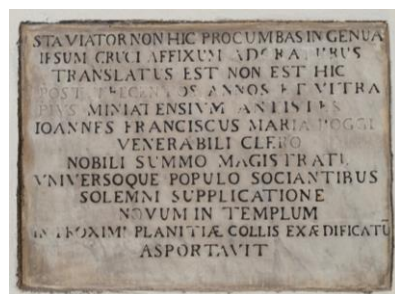 STA VIATOR NON HIC PROCUMBAS IN GENUA
IPSUM CRUCI AFFIXUM ADORATURUS
TRANSLATUS EST NON EST HIC
POST TRECENTOS ANNOS ET VLTRA
PIVS MINIATENSIVM ANTISTES
IOANNES FRANCISCUS MARIA POGGI
VENERABILI CLERO
NOBILI SUMMO MAGISTRATI,
VNIVERSOQUE POPULO SOCIANTIBUS
SOLEMNI SUPPLICATIONE
NOVUM IN TEMPLUM
IN PROXIMI PLANITIÆ COLLIS EXÆDIFICATŪ
ASPORTAVIT